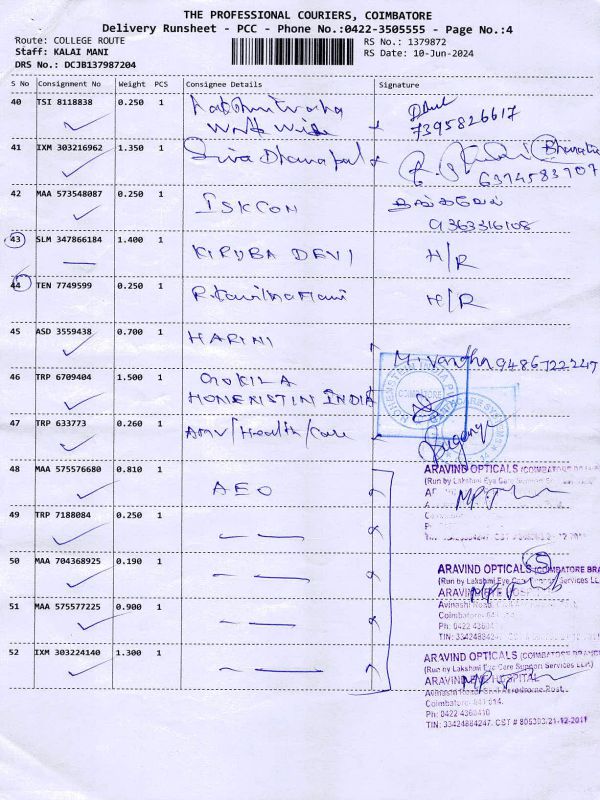 THE PROFESSIONAL COURIERS, COIMBATORE
Delivery Runsheet - PCC - Phone No.:0422-3505555 - Page No.:4
Route: COLLEGE ROUTE
Staff: KALAI MANI
DRS No.: DCJB137987204
RS No.: 1379872
RS Date: 10-Jun-2024
S No Consignment No Weight PCS Consignee Details Signature
40 TSI 8118838 0.250 1
7395826617
41 IXM 303216962 1.350 1 Siva Dhanapal
6374583707
42 MAA 573548087 0.250 1 ISKCON
9363316108
43 SLM 347866184 1.400 1 KIRUBA DEVI H/R
44 TEN 7749599 0.250 1 H/R
45 ASD 3559438 0.700 1 HARINI
9486722247
46 TRP 6709404 1.500 1 GOKILA
HONEKISTIN INDIA
47 TRP 633773 0.260 1 AMV/Health/Care
48 MAA 575576680 0.810 1 AEO
ARAVIND OPTICALS (COIMBATORE
(Run by Lakshmi Eye Care Support
49 TRP 7188084 0.250 1
50 MAA 704368925 0.190 1
ARAVIND OPTICALS (COIMBATORE BRA
(Run by Lakshmi Eye Care Support Services LL
ARAVIND EYE HOSP
51 MAA 575577225 0.900 1
Avinashi Road,
Coimbatore-
Ph: 0422 4360410
52 IXM 303224140 1.300 1
ARAVIND OPTICALS (COIMBATORE BRANCH
(Run by Lakshmi Eye Care Support Services LLP)
ARAVIND EYE HOSPITAL
Avinashi Road, Civil Aerodrome Post,
Coimbatore- 641 014.
Ph: 0422 4360410
TIN: 33424884247. CST # 805393/21-12-2011